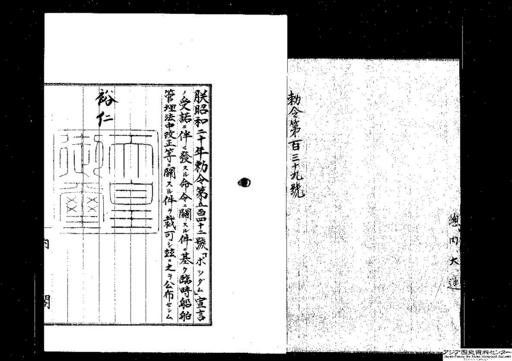 勅令第百三十九號
朕昭和二十年勅令第五百四十二號「ポツダム」宣言
ノ受諾ニ伴ヒ發スル命令ニ關スル件ニ基ク臨時船舶
管理法中改正等ニ關スル件ヲ裁可シ茲ニ之ヲ公布セシム
裕仁
天皇
御璽
内閣
アジア歴史資料センター